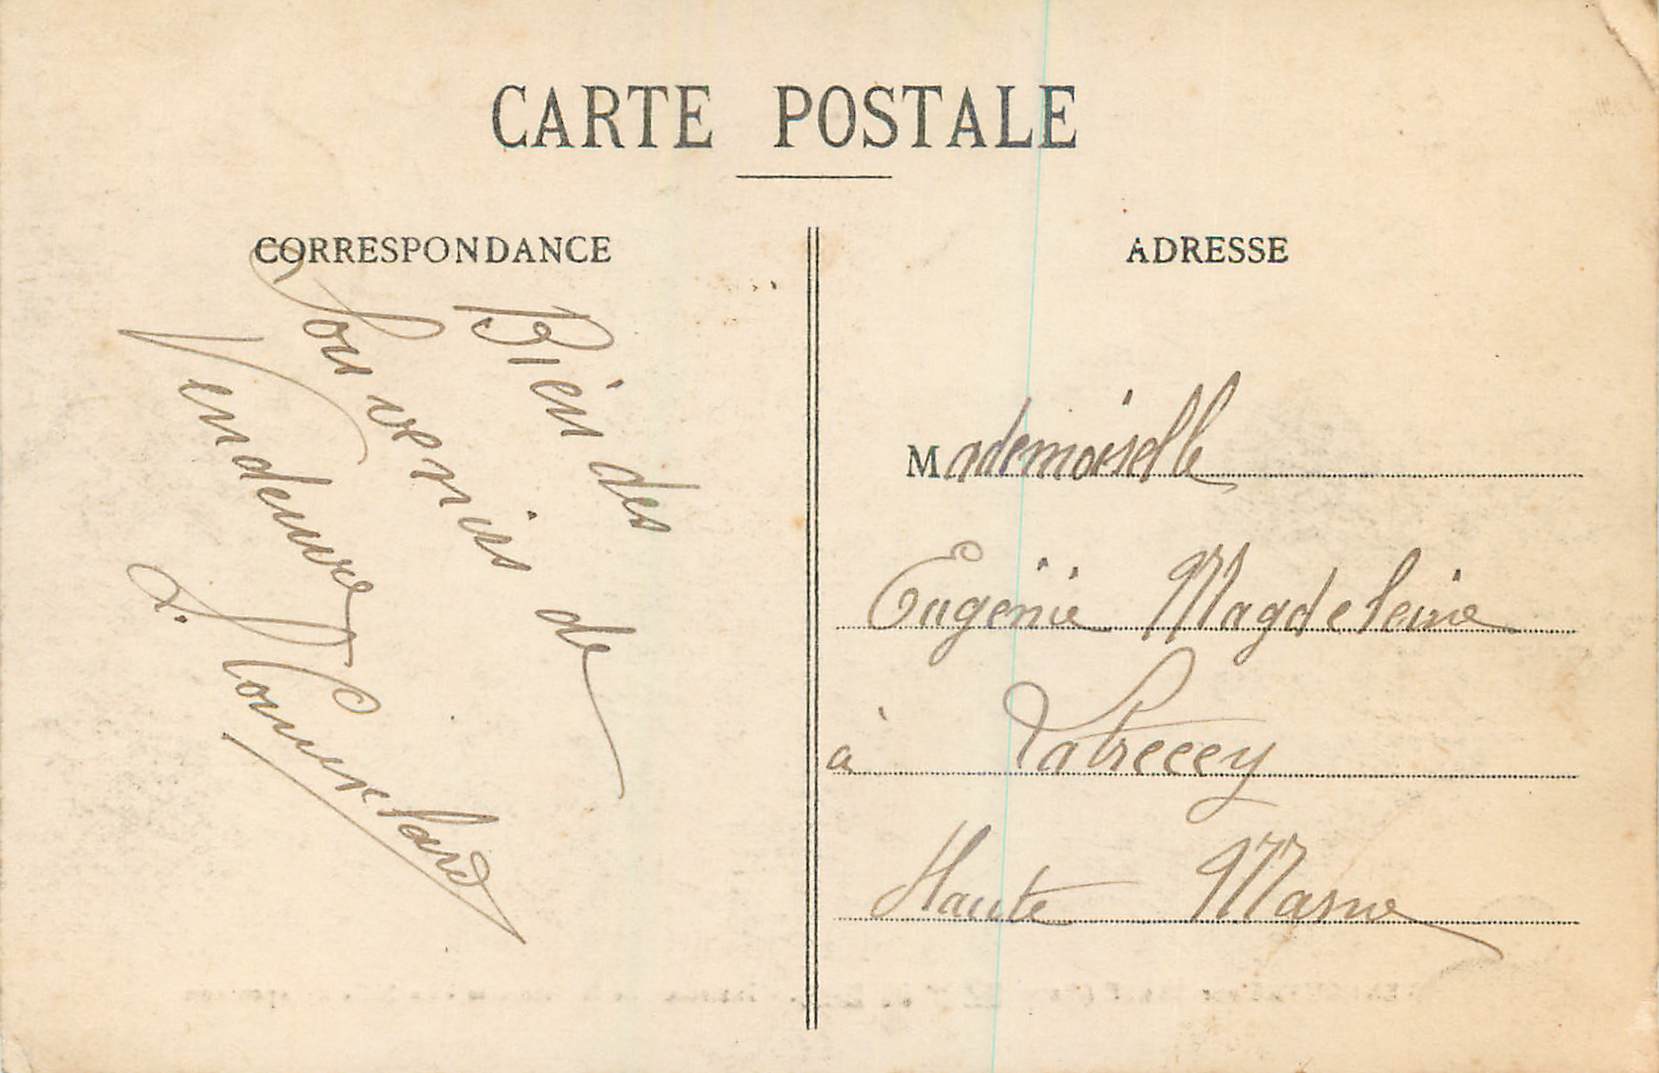 CARTE POSTALE
CORRESPONDANCE
Bien des
Souvenirs de
Vendeuvre
ADRESSE
Mademoiselle
Eugénie Magdeleine
à Latrecey
Haute Marne